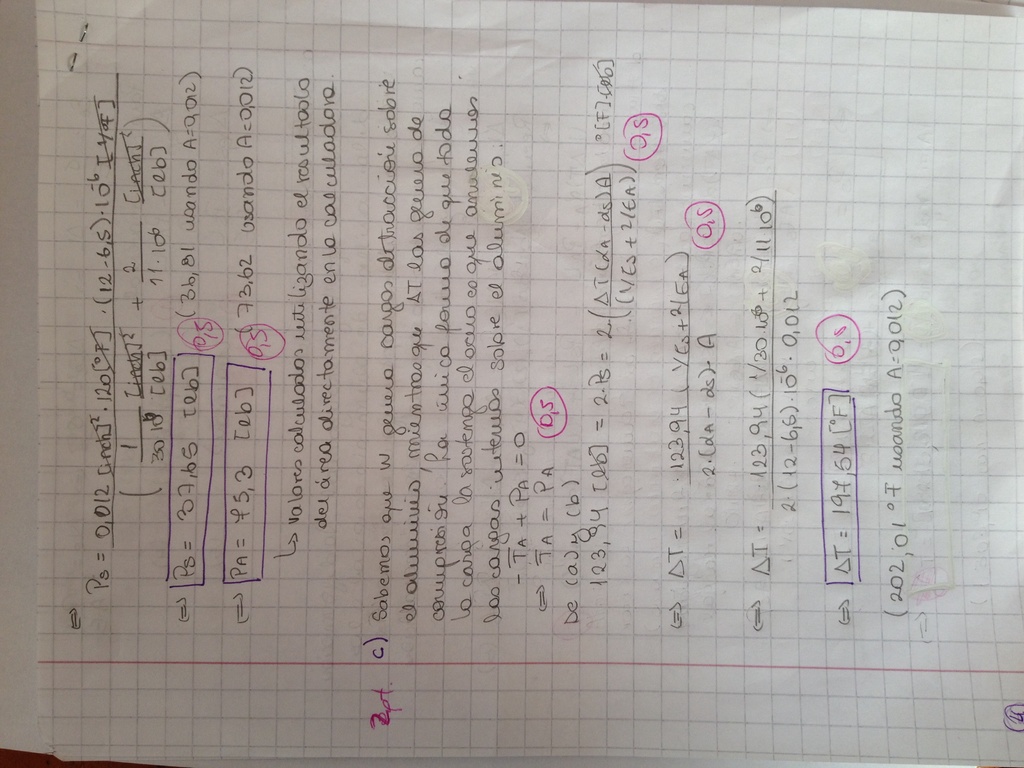 ⇔
Ps = 0,012 [inch]² · 120[°F] · (12-6,5) · 10⁻⁶ [1/°F]
( 1 / 30·10⁶ [inch]²/[lb] + 2 / 11·10⁶ [inch]²/[lb] )
⇔ Ps = 37,65 [lb] (36,81 usando A=0,012)
0,5
⇔ PA = 75,3 [lb] (73,62 usando A=0,012)
0,5
↳ Valores calculados utilizando el resultado
del área directamente en la calculadora.
2pt. c) Sabemos que W genera cargas de tracción sobre
el aluminio, mientras que ΔT las genera de
compresión. La única forma de que toda
la carga la sostenga el acero es que anulemos
las cargas internas sobre el aluminio.
- TA + PA = 0
⇔ TA = PA 0,5
De (a) y (b)
123,94 [lb] = 2·Ps = 2·( ΔT(αA-αs)A / (1/Es + 2/EA) ) °[F][lb]
0,5
⇔ ΔT = 123,94 (1/Es + 2/EA) / 2·(αA-αs)·A
0,5
⇔ ΔT = 123,94 (1/30·10⁶ + 2/11·10⁶) / 2(12-6,5)·10⁻⁶·0,012
⇔ ΔT = 197,54 [°F] 0,5
(202,01 °F usando A=0,012)
4